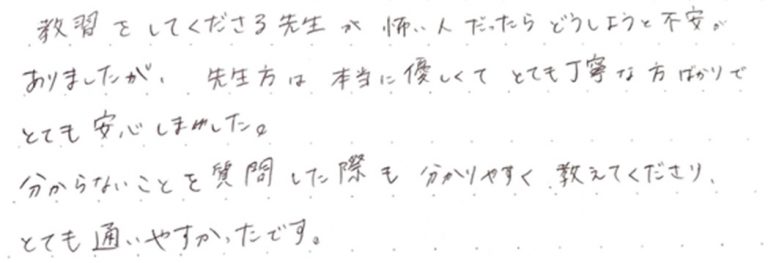 教習をしてくださる先生が怖い人だったらどうしようと不安が
ありましたが、先生方は本当に優しくてとても丁寧な方ばかりで
とても安心しました。
分からないことを質問した際も分かりやすく教えてくださり、
とても通いやすかったです。